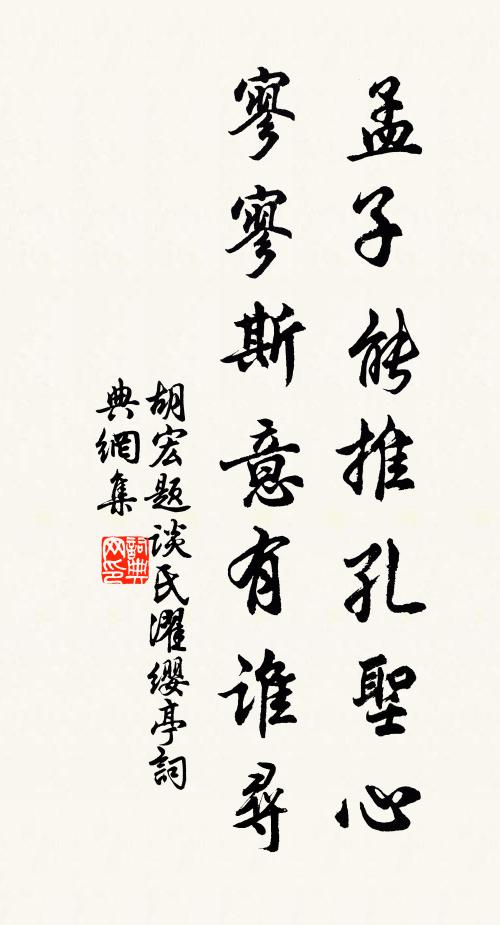 孟子能推孔聖心
寥寥斯意有誰尋
胡宏题谈氏濯缨亭詞
典網集
詞典網印